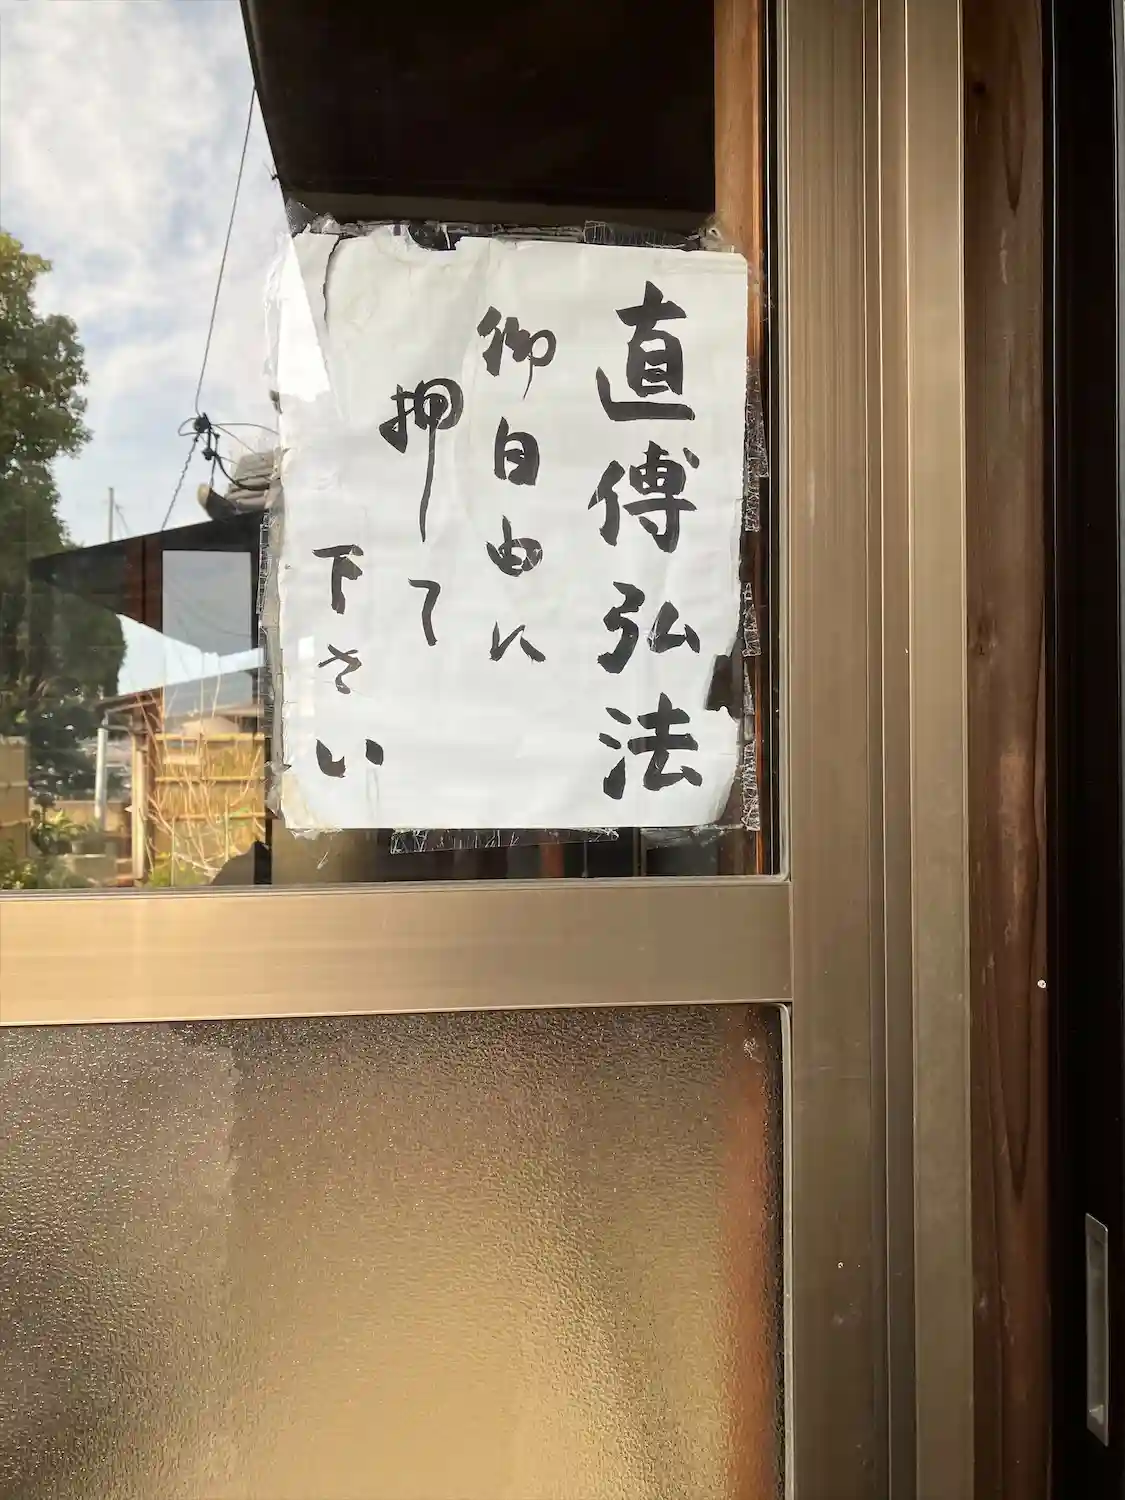 直傅弘法
御自由に
押て
下さい